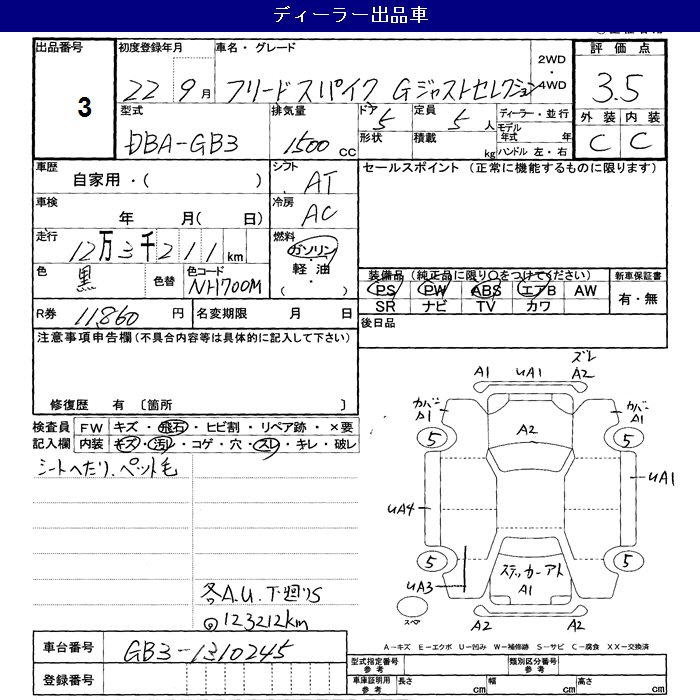 ディーラー出品車
出品番号 3
初度登録年月 22 9月
車名・グレード フリードスパイク Gジャストセレクション
2WD・4WD
評価点 3.5
外装 内装
C C
型式 DBA-GB3
排気量 1500 cc
ドア 5 形状
定員 5人 積載 kg
ディーラー・並行
モデル年式 年
ハンドル 左・右
車歴 自家用・( )
シフト AT
セールスポイント (正常に機能するものに限ります)
車検 年 月( 日)
冷房 AC
走行 12万3千211km
燃料 ガソリン・軽油・( )
色 黒 色替 色コード NH700M
装備品 (純正品に限り○をつけてください) 新車保証書
PS PW ABS エアB AW 有・無
SR ナビ TV カワ
R券 11,860円 名変期限 月 日
後日品
注意事項申告欄 (不具合内容等は具体的に記入して下さい)
修復歴 有 〔箇所 〕
検査員 FW キズ・飛石・ヒビ割・リペア跡・×要
記入欄 内装 キズ・汚レ・コゲ・穴・スレ・キレ・破レ
シートヘたり、ペット毛
各A.U.下廻りS
123212km
A1 UA1 ズレ A2
カバーA1 カバーA1
5 A2 5
UA4 UA1
5 5
UA3 ステッカーアト A1
スペア A2 A2
A-キズ E-エクボ U-凹み W-補修跡 S-サビ C-腐食 XX-交換済
車台番号 GB3-1310245
登録番号
型式指定番号 参考 類別区分番号 参考
車庫証明用 参考 長さ cm 幅 cm 高さ cm